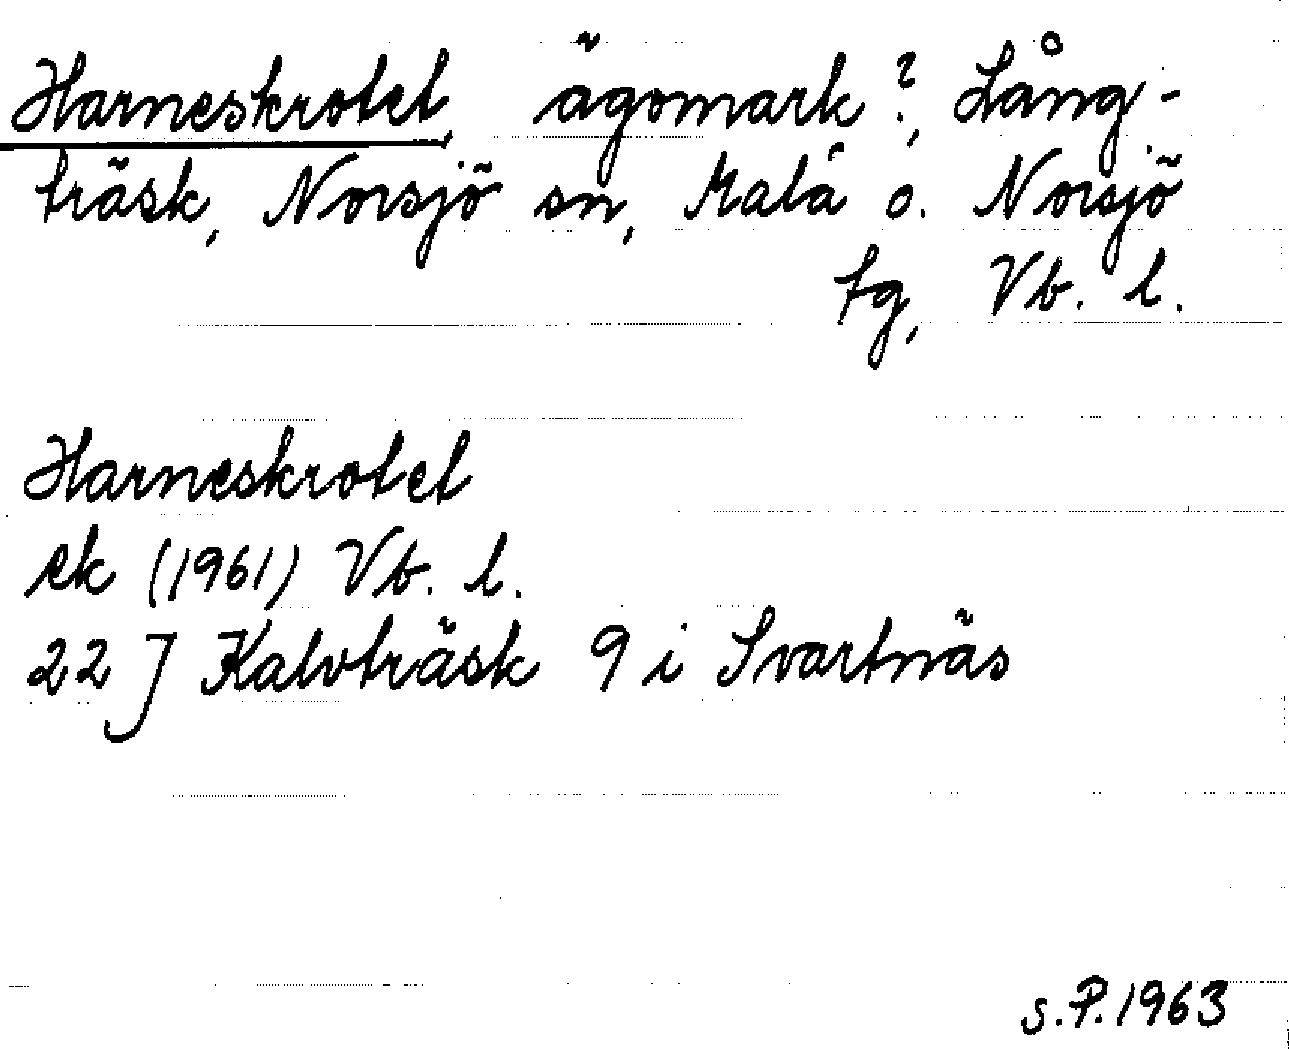 Harneskrotet, ägomark?, Lång-
träsk, Norsjö sn, Malå o. Norsjö
tg, Vb. l.
Harneskrotet
ek (1961) Vb. l.
22 J Kalvträsk 9 i Svartnäs
S.P. 1963